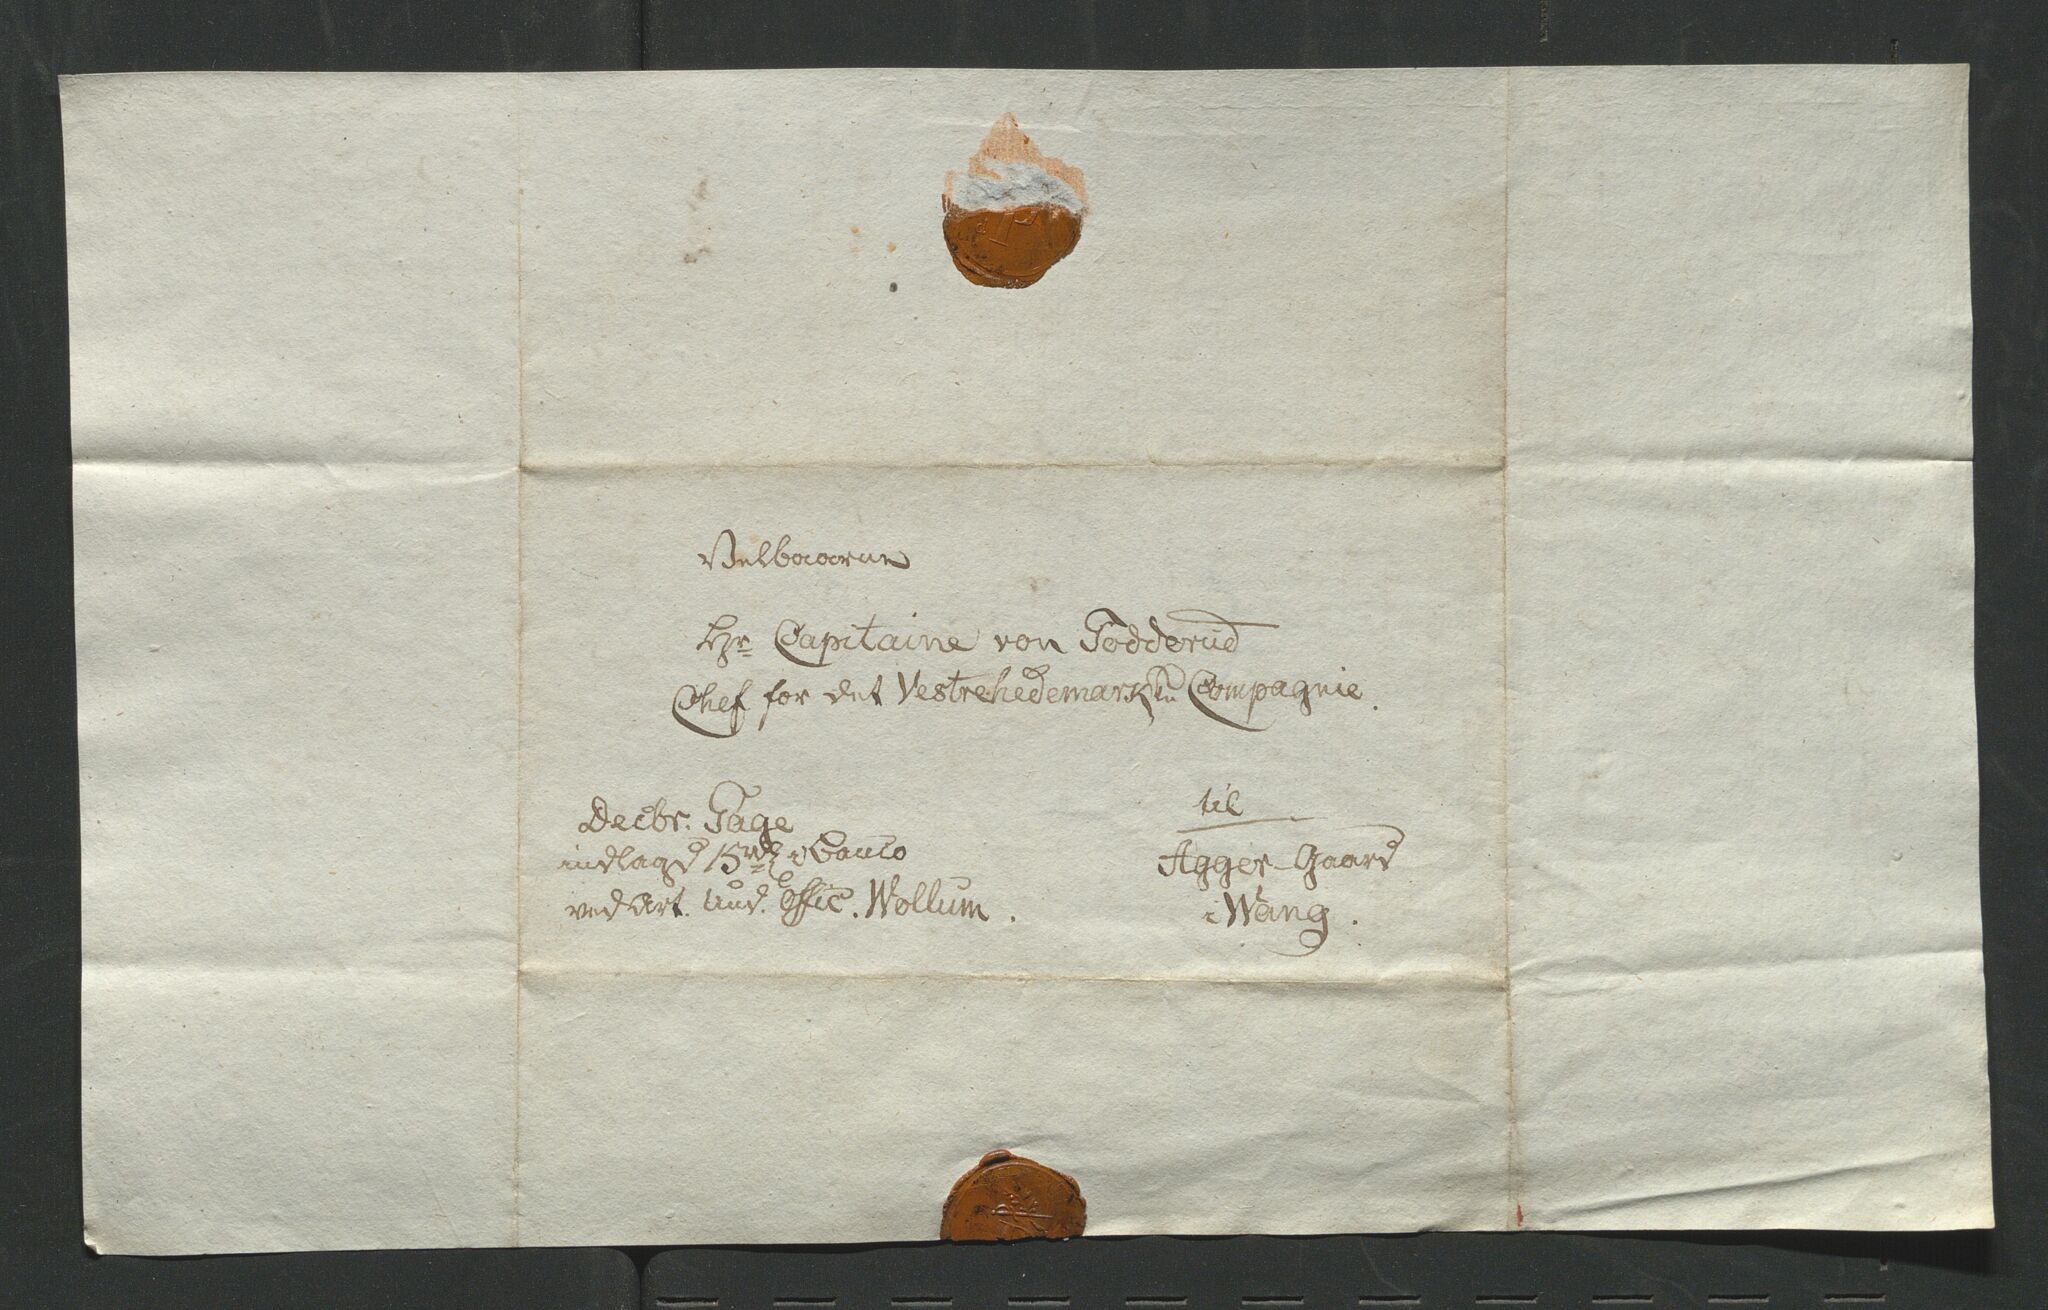 Velbaarne
Hr Capitaine von Todderud
Chef for det Vestrehedemarkske Compagnie.
Decbr. Tage
indlagd 15 rd i Banco
ved Art. Und. Offic. Wollum.
til
Agger-Gaard
i Wang.